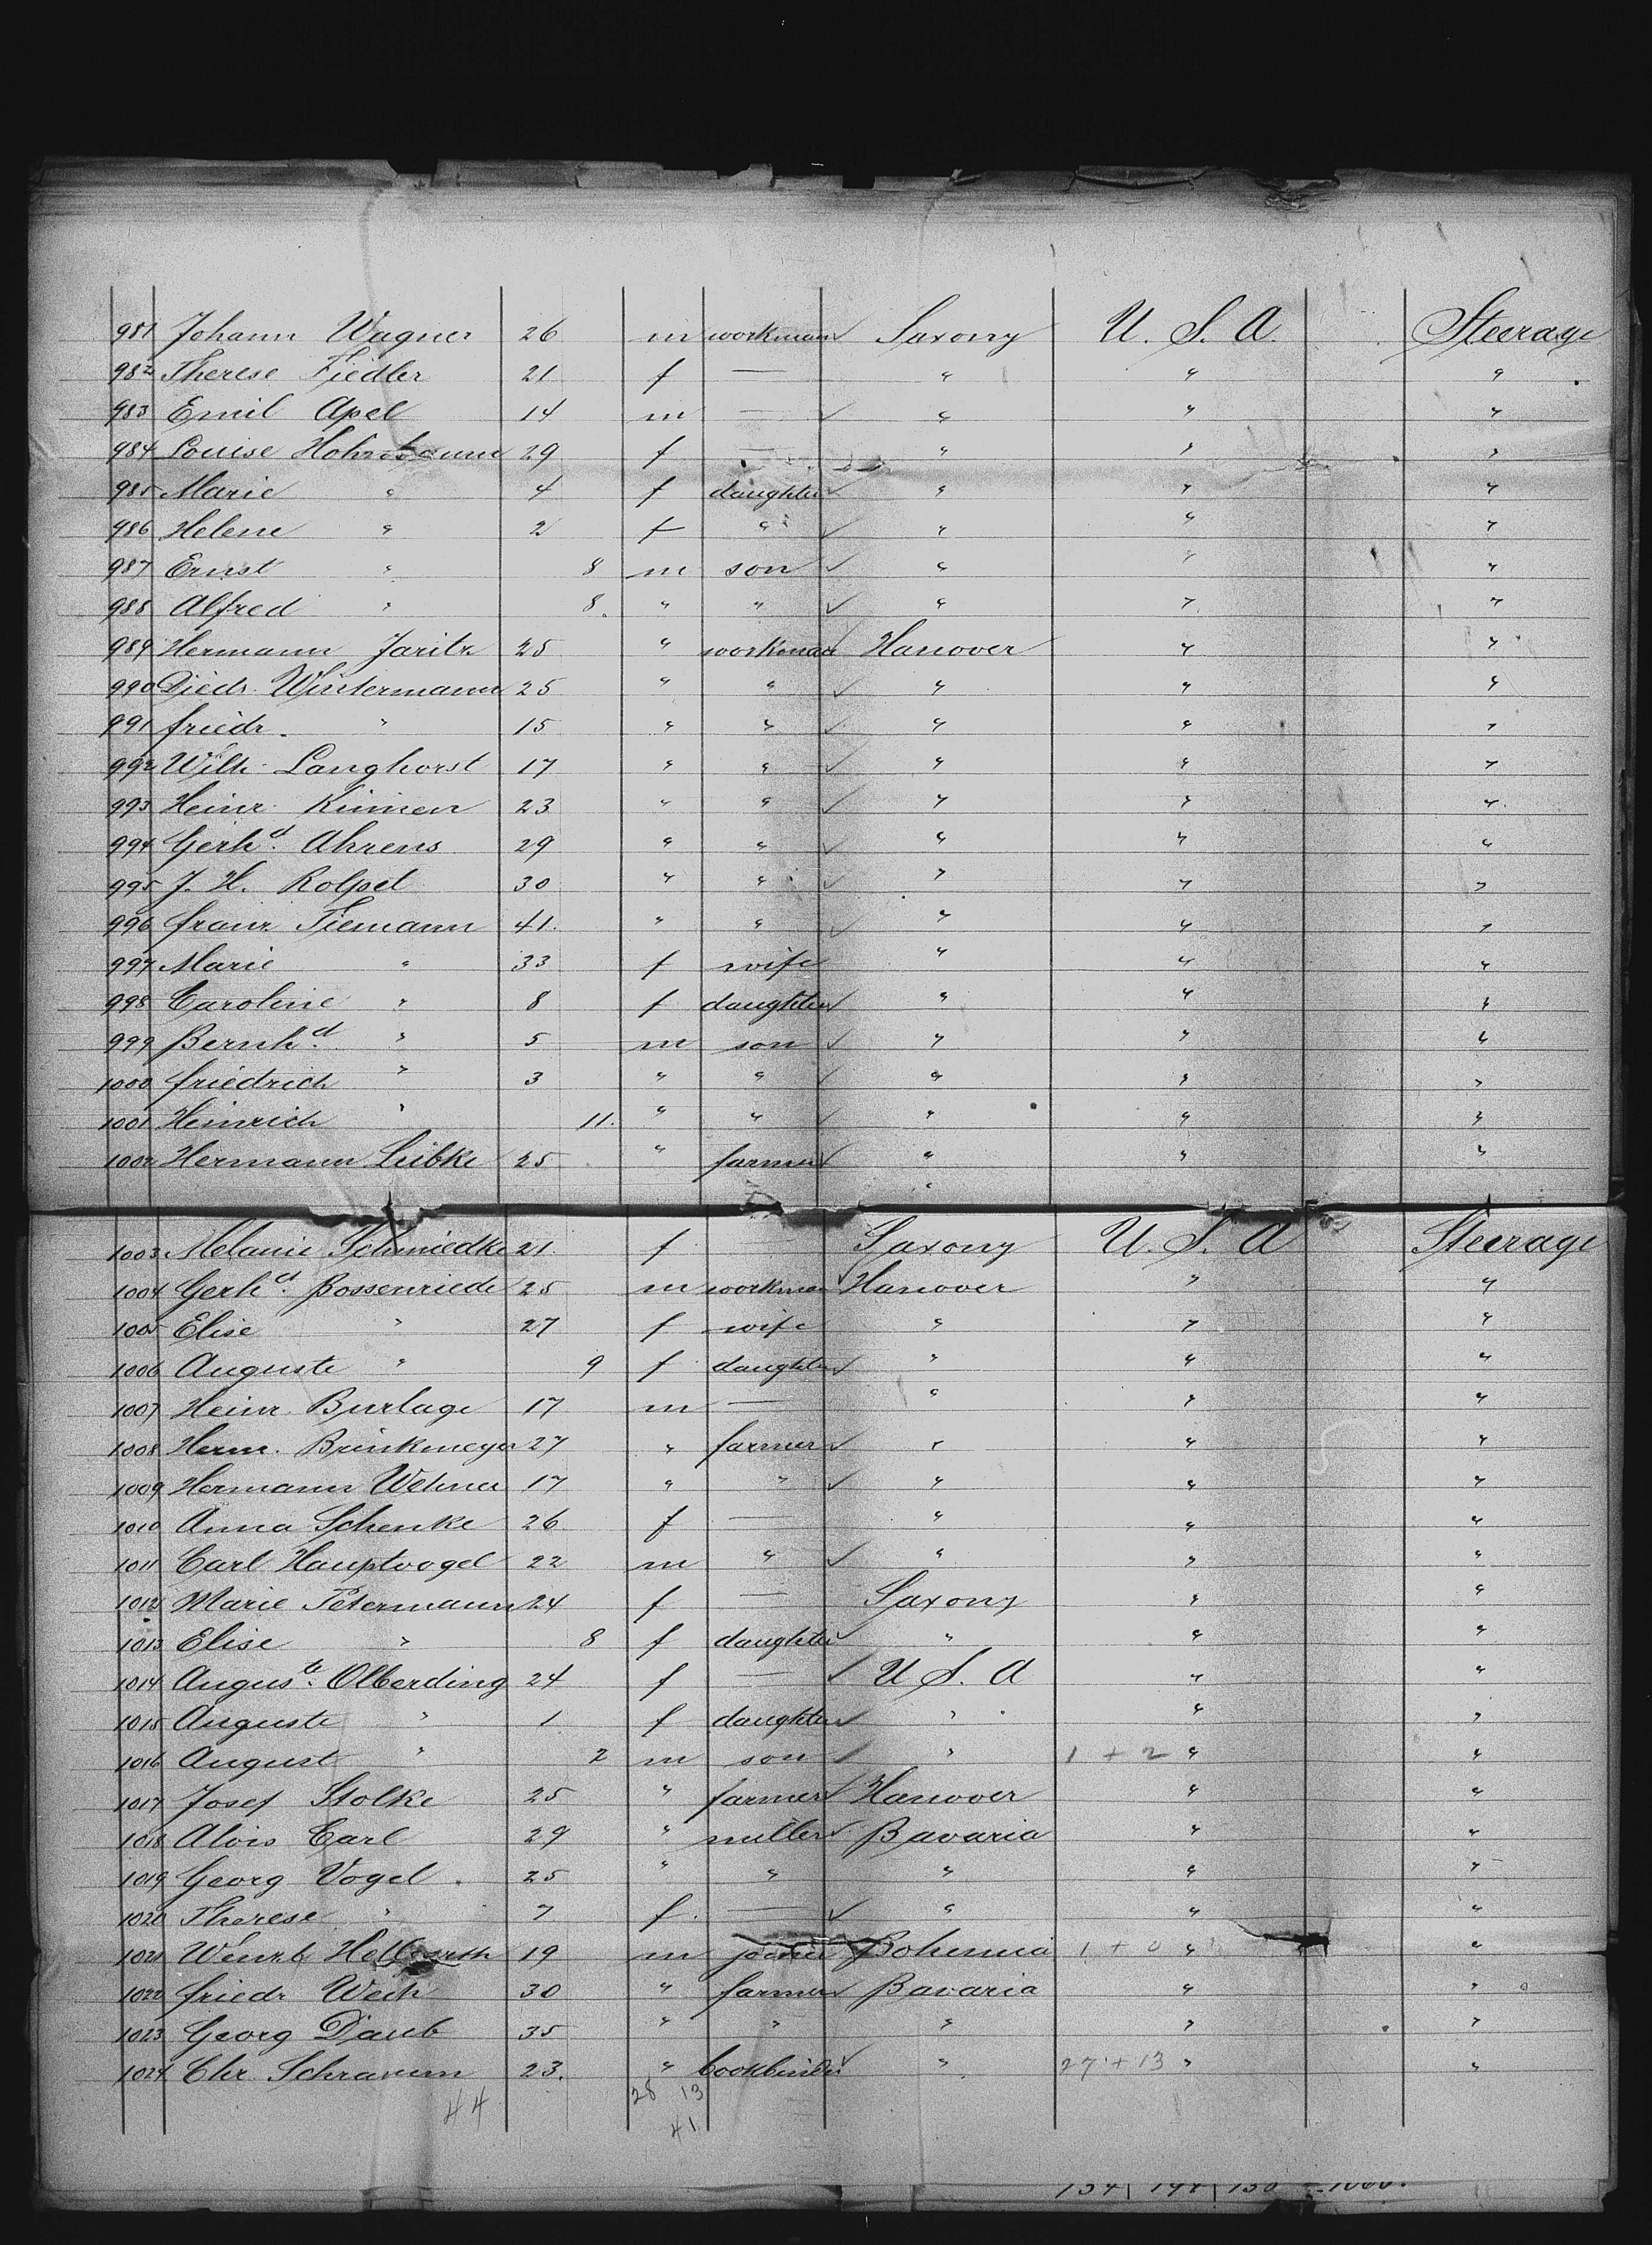 981 Johann Wagner 26 m workman Saxony U. S. A. Steerage
982 Therese Fiedler 21 f — " " "
983 Emil Apel 14 m — " " "
984 Louise Hohnbaum 29 f — " " "
985 Marie " 4 f daughter " " "
986 Helene " 2 f " " " "
987 Ernst " 8 m son " " "
988 Alfred " 8. " " " " "
989 Hermann Jaritz 25 " workman Hanover " "
990 Diedr. Wintermann 25 " " " " "
991 friedr. " 15 " " " " "
992 Wilh. Langhorst 17 " " " " "
993 Heinr. Kinnen 23 " " " " "
994 Gerhd. Ahrens 29 " " " " "
995 J. H. Rolpel 30 " " " " "
996 franz Tiemann 41. " " " " "
997 Marie " 33 f wife " " "
998 Caroline " 8 f daughter " " "
999 Bernhd. " 5 m son " " "
1000 friedrich " 3 " " " " "
1001 Heinrich " 11. " " " " "
1002 Hermann Leibke 25 " farmer " " "
1003 Melanie Schmiedke 21. f Saxony U. S. A Steerage
1004 Gerhd. Bossenriede 25 m workman Hanover " "
1005 Elise " 27 f wife " " "
1006 Auguste " 9 f daughter " " "
1007 Heinr. Burlage 17 m — " " "
1008 Herm. Brinkmeyer 27 " farmer " " "
1009 Hermann Wehner 17 " " " " "
1010 Anna Schenke 26 f — " " "
1011 Carl Hauptvogel 22 m " " " "
1012 Marie Petermann 24 f — Saxony " "
1013 Elise " 8 f daughter " " "
1014 Auguste. Olberding 24 f — U S. A " "
1015 Auguste " 1 f daughter " " "
1016 August " 2 m son " 1 + 2 " "
1017 Josef Stolke 25 " farmer Hanover " "
1018 Alois Carl 29 " miller Bavaria " "
1019 Georg Vogel. 25 " " " " "
1020 Therese " 7 f. — " " "
1021 19 m joiner Bohemia 1 + 0 " "
1022 friedr Weih 30 " farmer Bavaria " "
1023 Georg Daub 35 " " " " "
1024 Chr. Schramm 23. " bookbinder " 27 + 13 " "
44 28 13
41